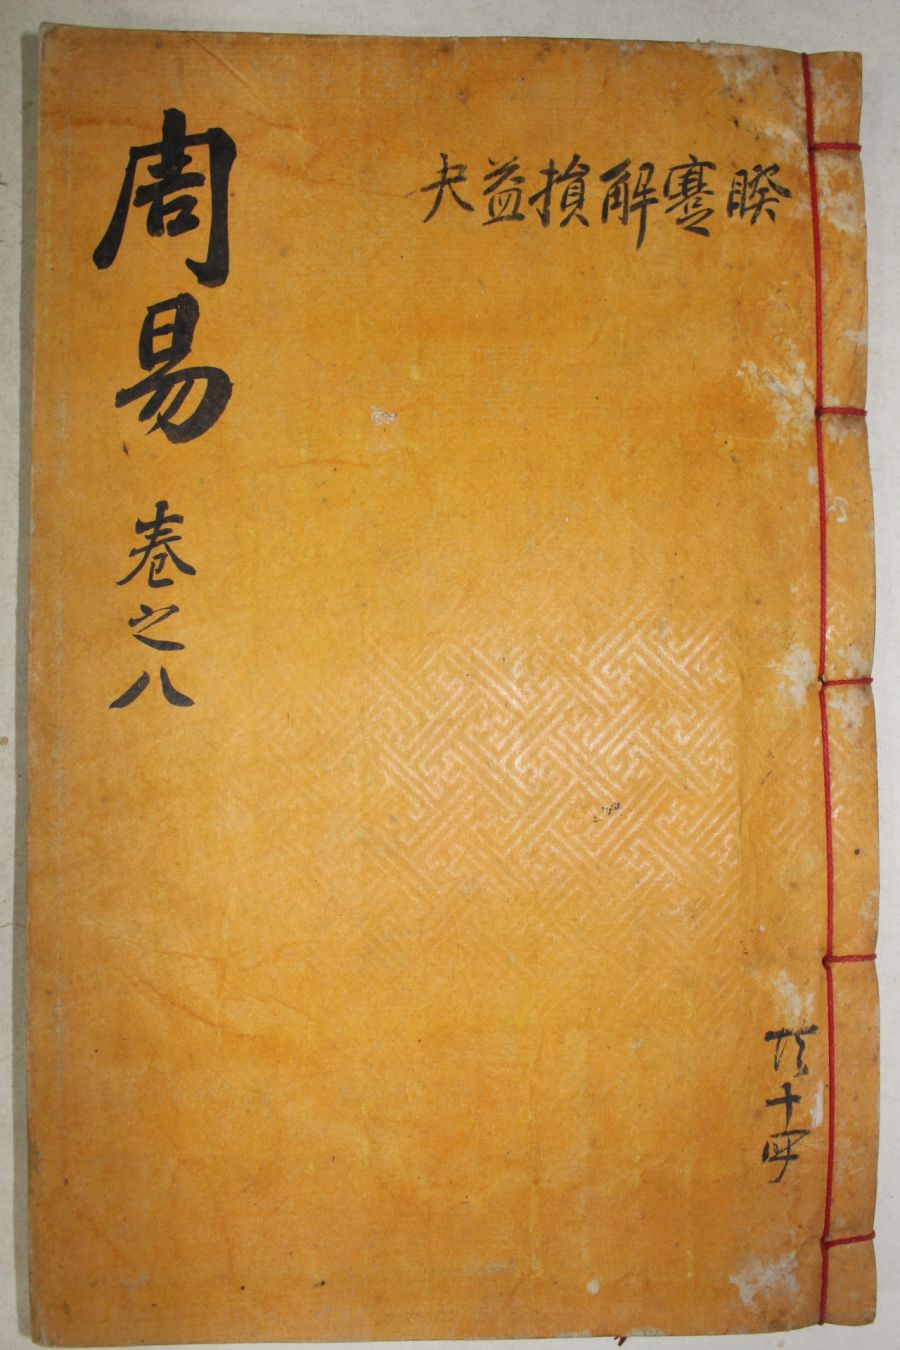 周易
卷之八
睽蹇解損益夬
十四